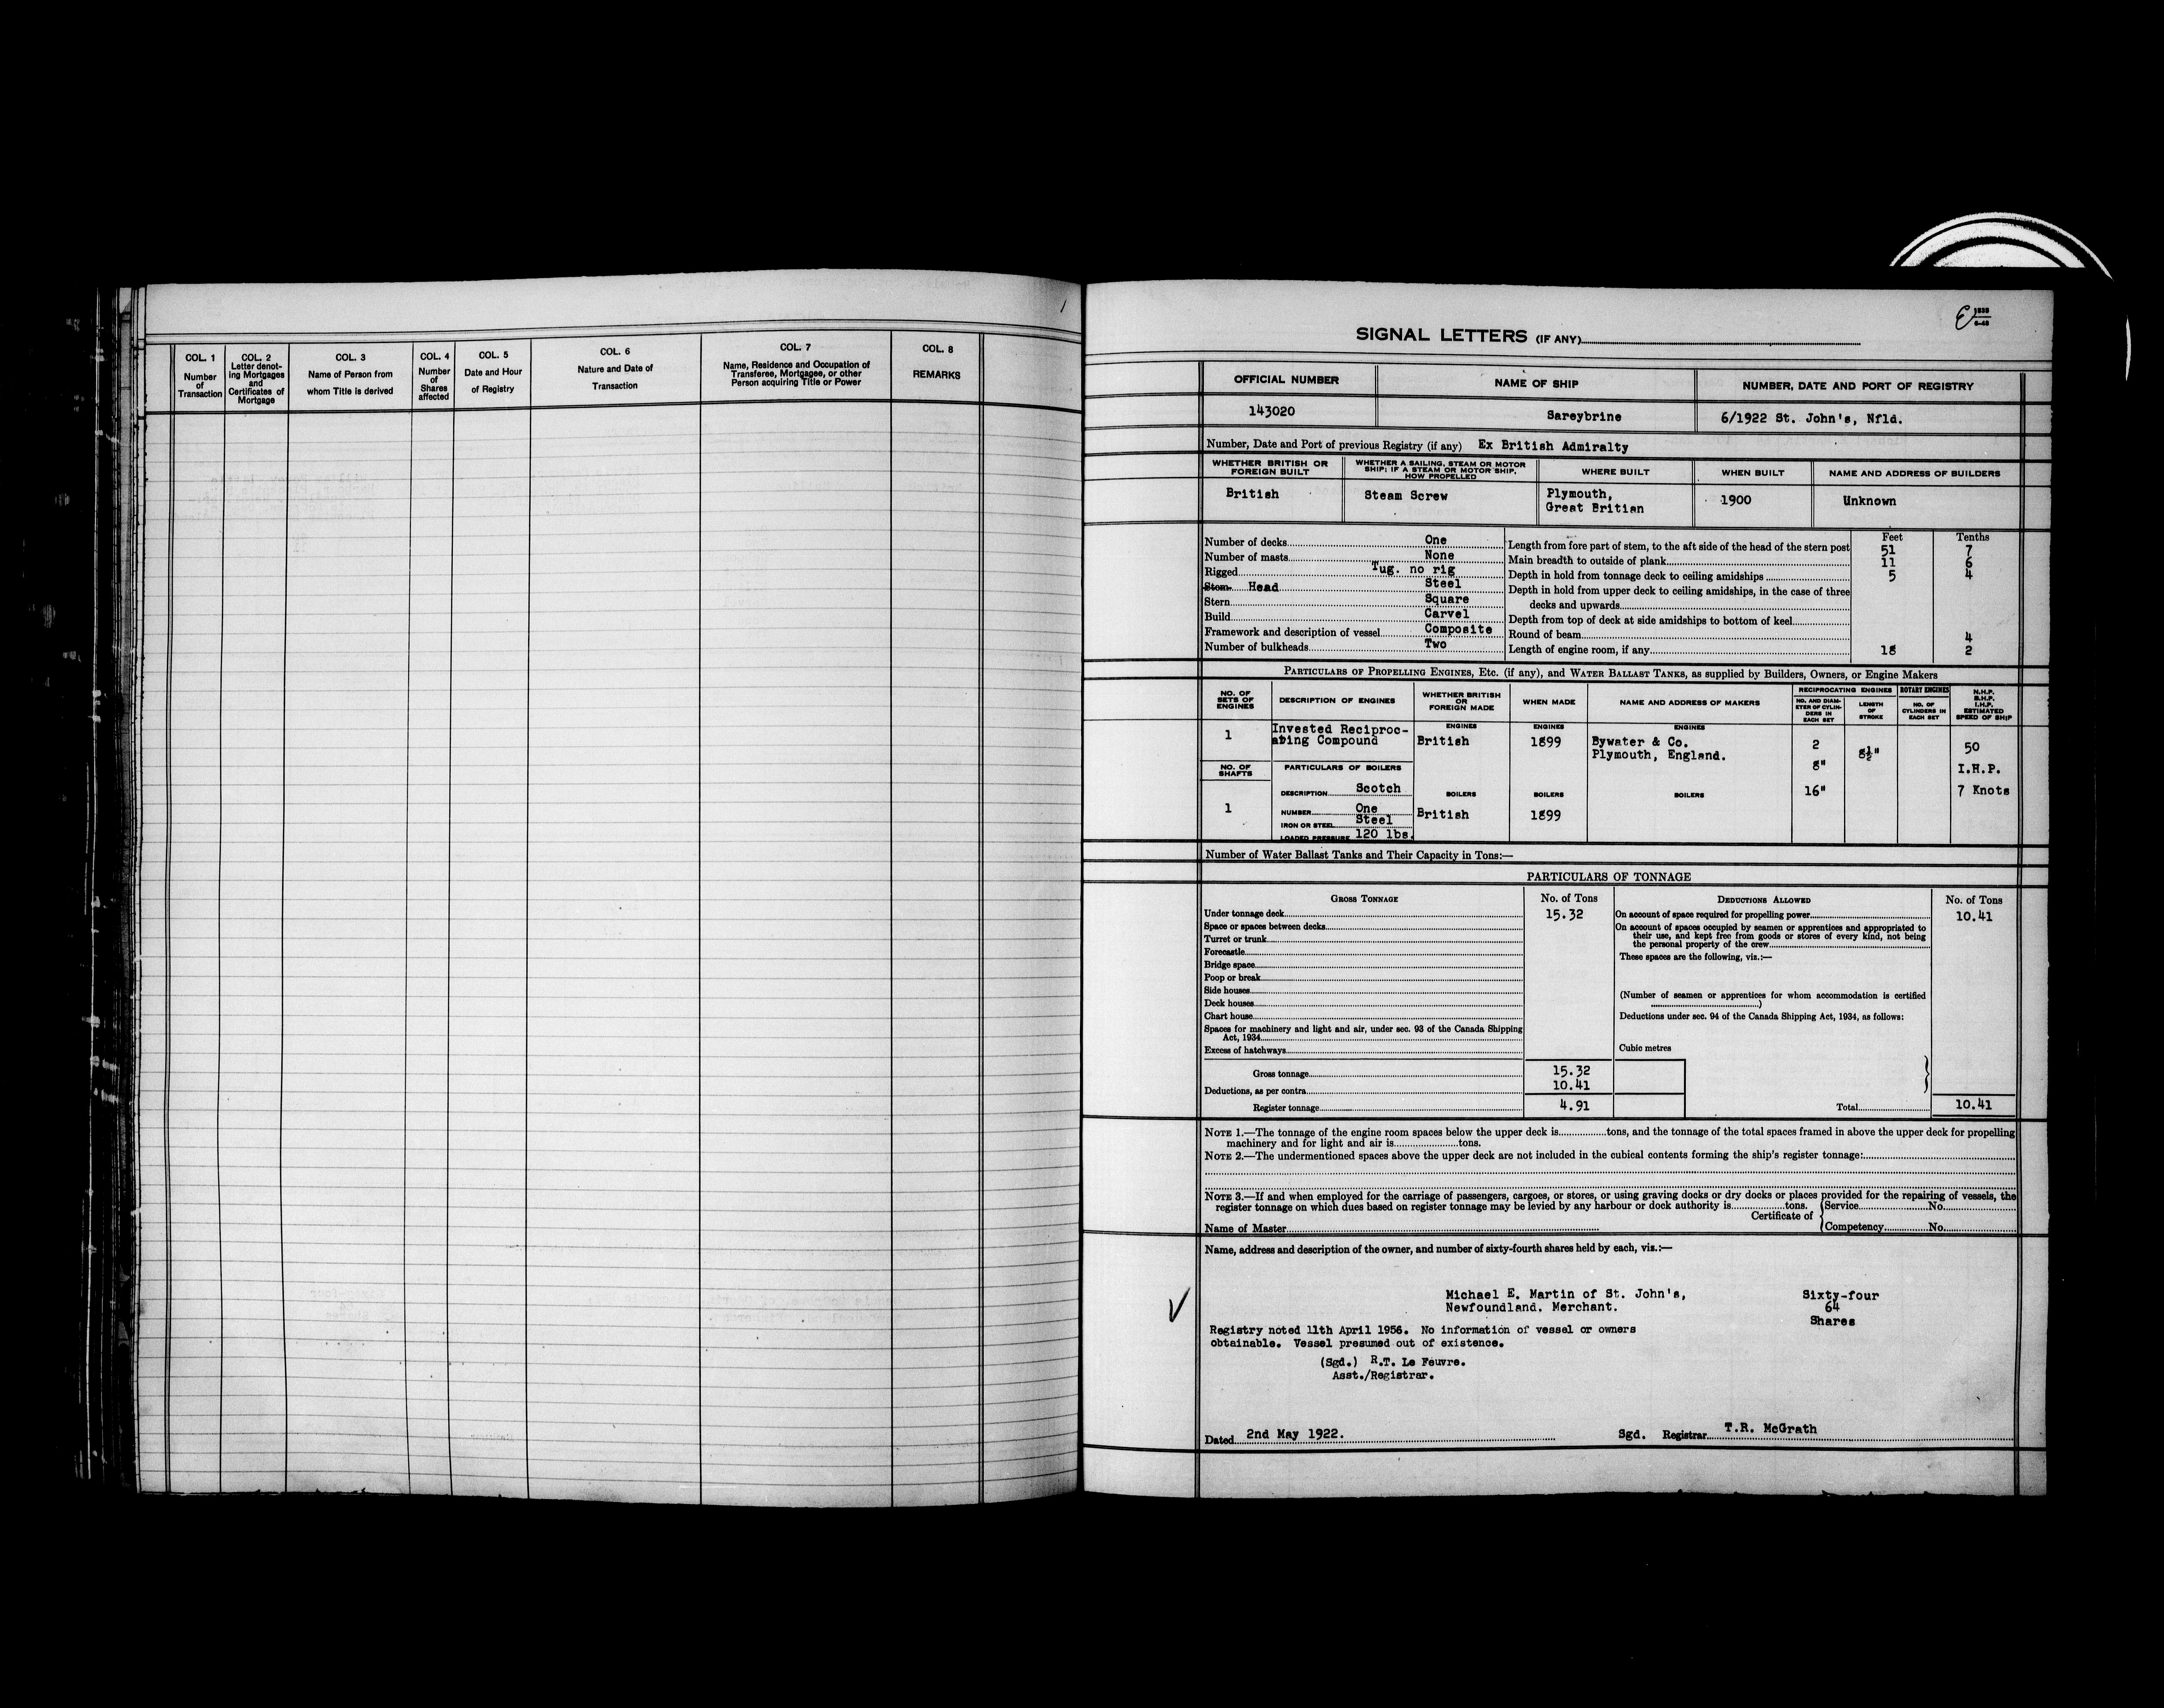 COL. 1
Number
of
Transaction
COL. 2
Letter denot-
ing Mortgages
and
Certificates of
Mortgage
COL. 3
Name of Person from
whom Title is derived
COL. 4
Number
of
Shares
affected
COL. 5
Date and Hour
of Registry
COL. 6
Nature and Date of
Transaction
COL. 7
Name, Residence and Occupation of
Transferee, Mortgagee, or other
Person acquiring Title or Power
COL. 8
REMARKS
SIGNAL LETTERS (IF ANY)
OFFICIAL NUMBER NAME OF SHIP NUMBER, DATE AND PORT OF REGISTRY
143020 Sareybrine 6/1922 St. John's, Nfld.
Number, Date and Port of previous Registry (if any) Ex British Admiralty
WHETHER BRITISH OR
FOREIGN BUILT
WHETHER A SAILING, STEAM OR MOTOR
SHIP; IF A STEAM OR MOTOR SHIP,
HOW PROPELLED
WHERE BUILT
WHEN BUILT
NAME AND ADDRESS OF BUILDERS
British
Steam Screw
Plymouth,
Great Britian
1900
Unknown
Number of decks One
Number of masts None
Rigged Tug. no rig
Stem Head Steel
Stern Square
Build Carvel
Framework and description of vessel Composite
Number of bulkheads Two
Feet Tenths
Length from fore part of stem, to the aft side of the head of the stern post 51 7
Main breadth to outside of plank 11 6
Depth in hold from tonnage deck to ceiling amidships 5 4
Depth in hold from upper deck to ceiling amidships, in the case of three
decks and upwards
Depth from top of deck at side amidships to bottom of keel
Round of beam 4
Length of engine room, if any 18 2
PARTICULARS OF PROPELLING ENGINES, ETC. (if any), and WATER BALLAST TANKS, as supplied by Builders, Owners, or Engine Makers
NO. OF
SETS OF
ENGINES
DESCRIPTION OF ENGINES
WHETHER BRITISH
OR
FOREIGN MADE
WHEN MADE
NAME AND ADDRESS OF MAKERS
RECIPROCATING ENGINES
NO. AND DIAM-
ETER OF CYLIN-
DERS IN
EACH SET
LENGTH
OF
STROKE
ROTARY ENGINES
NO. OF
CYLINDERS IN
EACH SET
N.H.P.
B.H.P.
I.H.P.
ESTIMATED
SPEED OF SHIP
1
Invested Reciproc-
ating Compound
ENGINES
British
ENGINES
1899
ENGINES
Bywater & Co.
Plymouth, England.
2
8"
16"
8½"
50
I.H.P.
7 Knots
NO. OF
SHAFTS
1
PARTICULARS OF BOILERS
DESCRIPTION Scotch
NUMBER One
IRON OR STEEL Steel
LOADED PRESSURE 120 lbs.
BOILERS
British
BOILERS
1899
BOILERS
Number of Water Ballast Tanks and Their Capacity in Tons:—
PARTICULARS OF TONNAGE
GROSS TONNAGE No. of Tons
Under tonnage deck 15.32
Space or spaces between decks
Turret or trunk
Forecastle
Bridge space
Poop or break
Side houses
Deck houses
Chart house
Spaces for machinery and light and air, under sec. 93 of the Canada Shipping
Act, 1934
Excess of hatchways
Gross tonnage 15.32
Deductions, as per contra 10.41
Register tonnage 4.91
DEDUCTIONS ALLOWED No. of Tons
On account of space required for propelling power 10.41
On account of spaces occupied by seamen or apprentices and appropriated to
their use, and kept free from goods or stores of every kind, not being
the personal property of the crew
These spaces are the following, viz.:—
(Number of seamen or apprentices for whom accommodation is certified
)
Deductions under sec. 94 of the Canada Shipping Act, 1934, as follows:
Cubic metres
Total 10.41
NOTE 1.—The tonnage of the engine room spaces below the upper deck is tons, and the tonnage of the total spaces framed in above the upper deck for propelling
machinery and for light and air is tons.
NOTE 2.—The undermentioned spaces above the upper deck are not included in the cubical contents forming the ship's register tonnage:
NOTE 3.—If and when employed for the carriage of passengers, cargoes, or stores, or using graving docks or dry docks or places provided for the repairing of vessels, the
register tonnage on which dues based on register tonnage may be levied by any harbour or dock authority is tons.
Certificate of
Service No.
Competency No.
Name of Master
Name, address and description of the owner, and number of sixty-fourth shares held by each, viz.:—
Michael E. Martin of St. John's,
Newfoundland. Merchant.
Sixty-four
64
Shares
Registry noted 11th April 1956. No information of vessel or owners
obtainable. Vessel presumed out of existence.
(Sgd.) R.T. Le Feuvre.
Asst./Registrar.
Dated 2nd May 1922. Sgd. Registrar T.R. McGrath